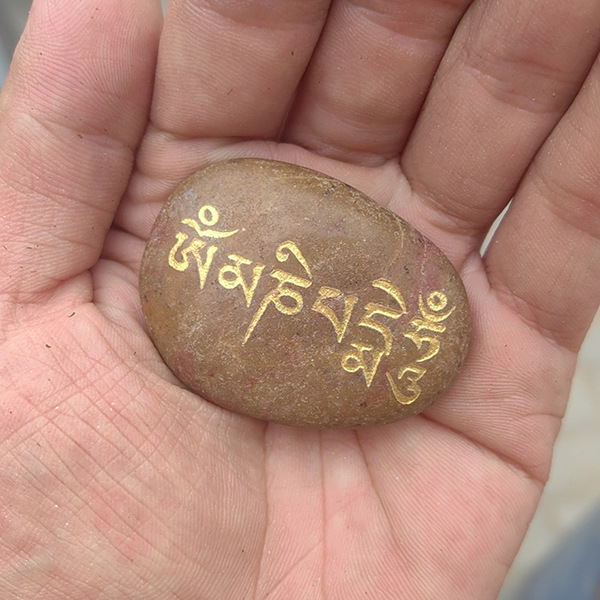 ཨོཾ མ ཎི པ དྨེ ཧཱུཾ